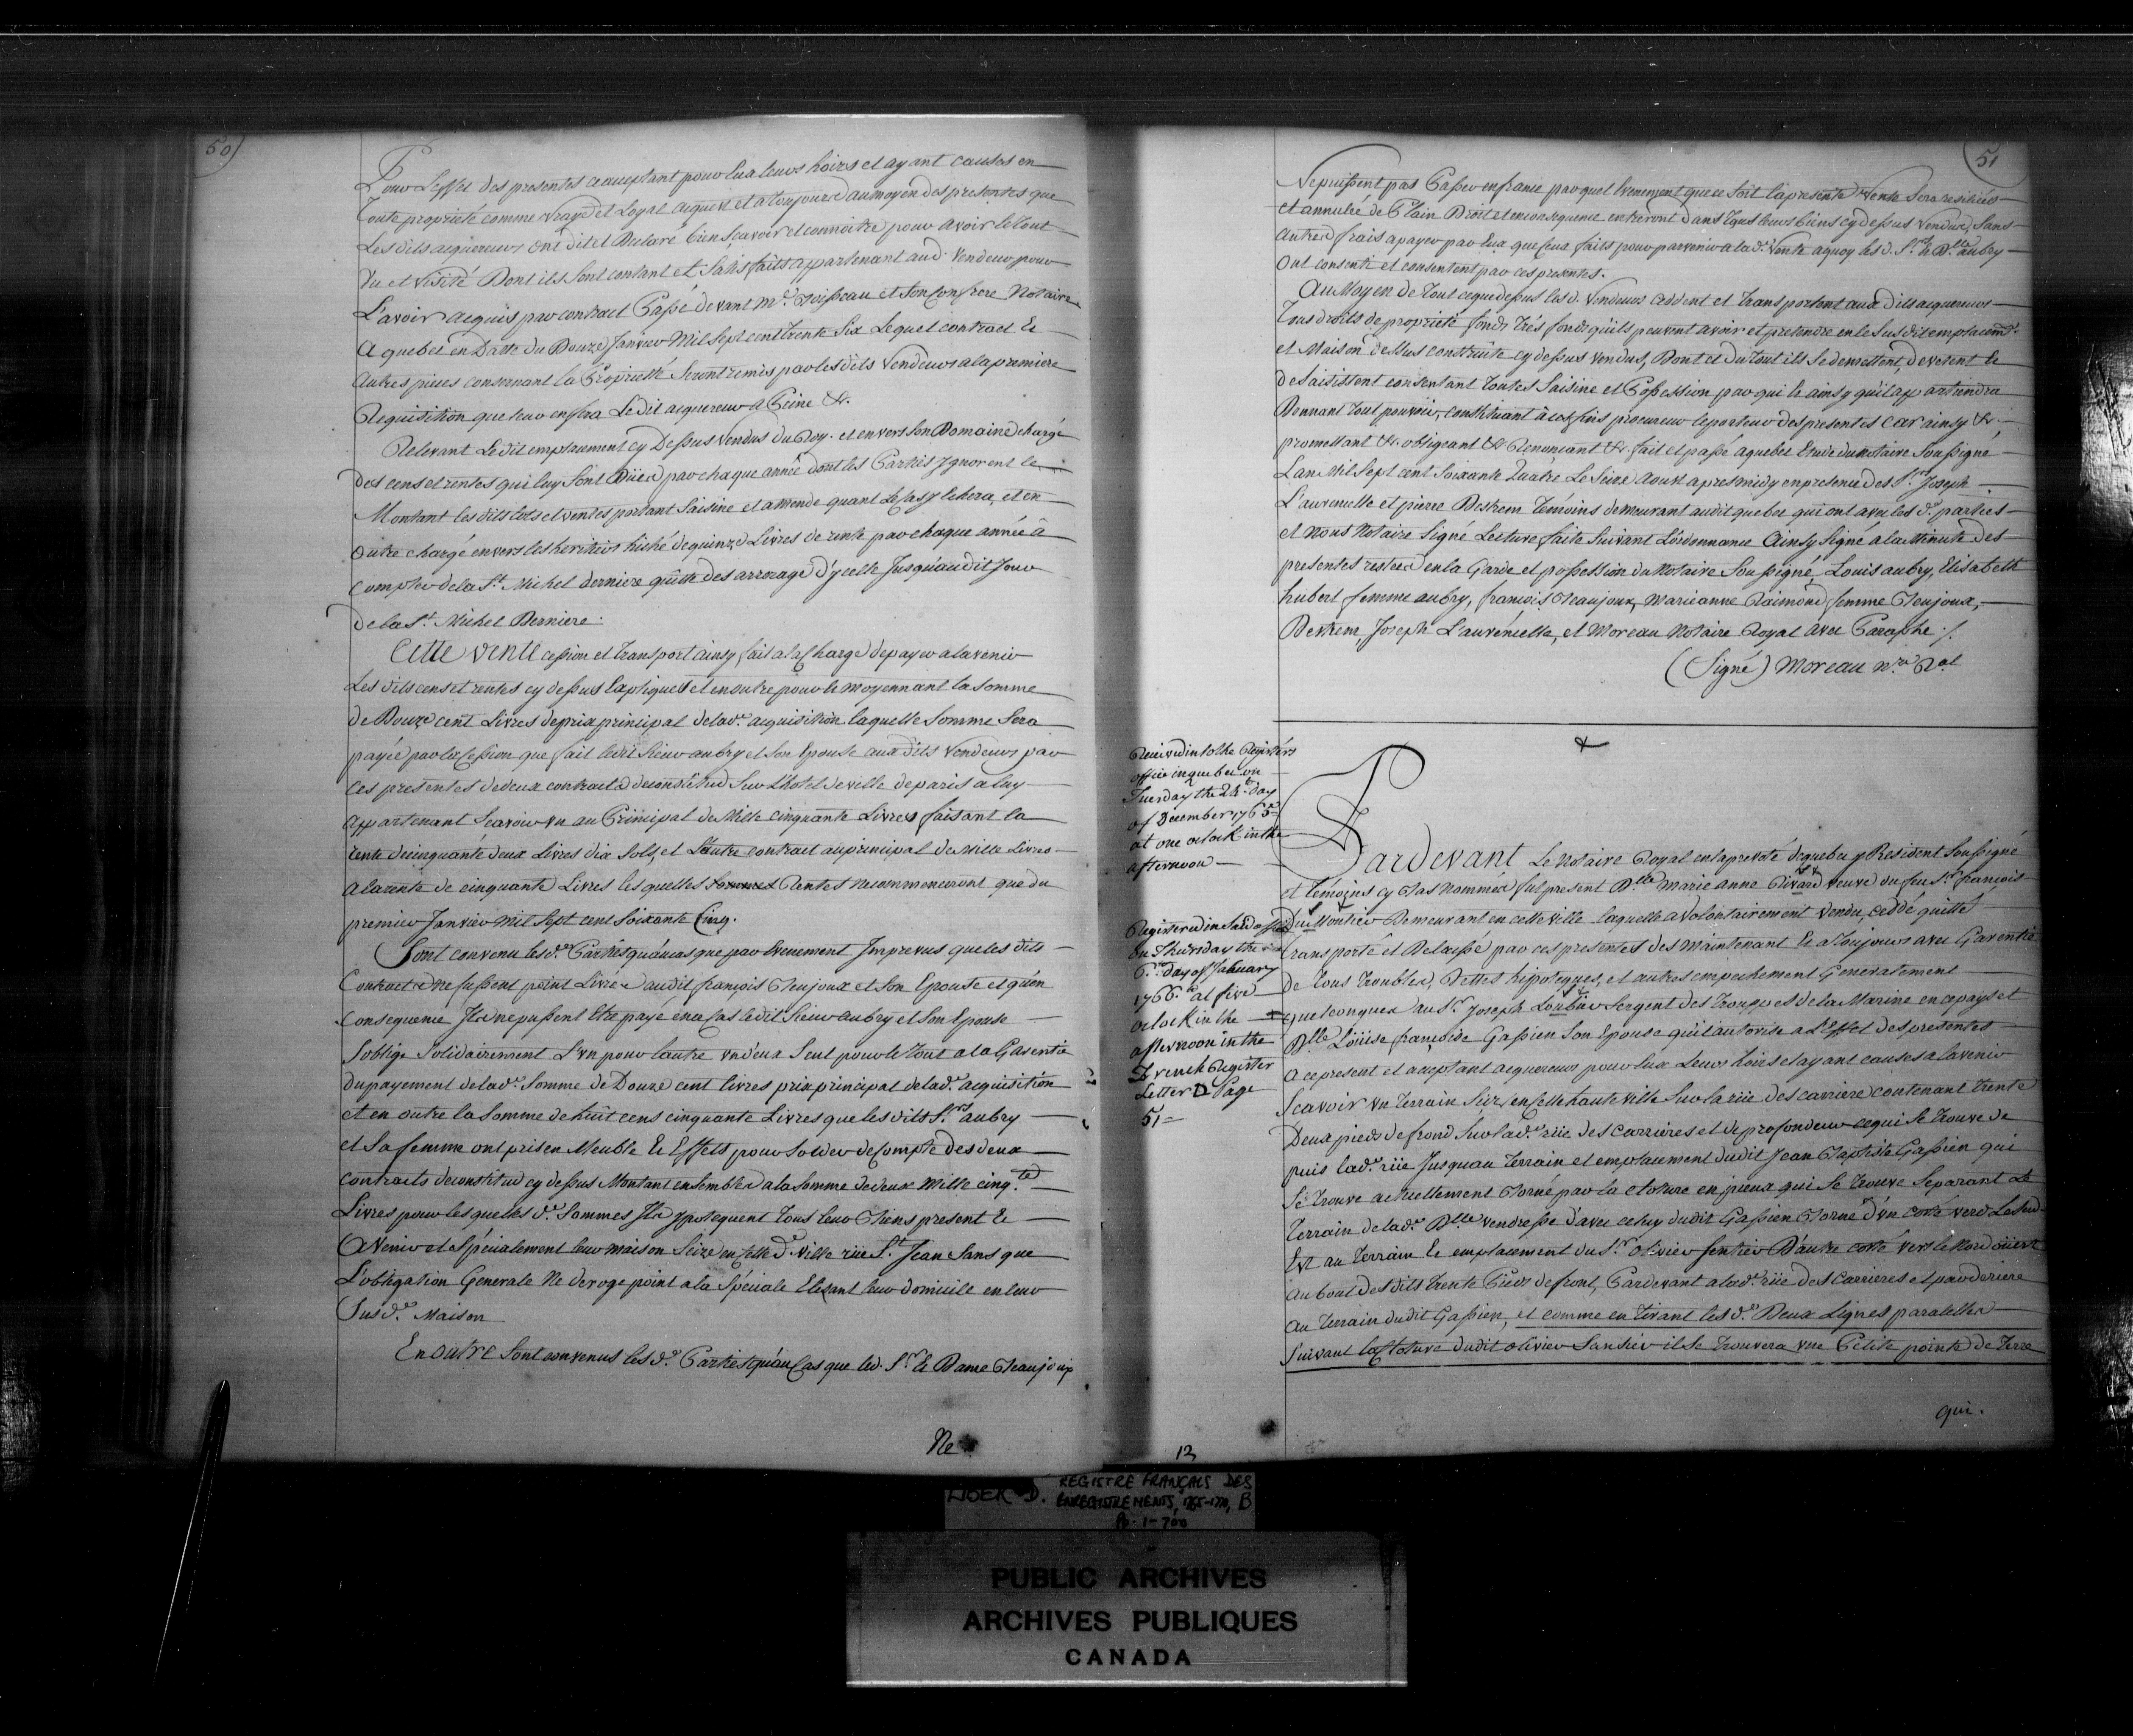 50)
Pour L'effet des presentes ce acceptant pour Eux leurs hoirs et ayant causes en
Toute propriété comme vraye et Loyal acquest et a toujours au moyen des presentes que
Les dits acquereurs ont dit et Declaré bien sçavoir et connoitre pour avoir le tout
Vu et visité Dont ils sont contant et satisfaits appartenant aud. Vendeur pour
L'avoir acquis par contract Passé devant Me. Boisseau et son confrere Notaire
A quebec en Datte du Douze Janvier Mil sept cent trente Six Lequel contract Et
Autres pieces consernant la Proprietté seront remis par les dits Vendeurs a la premiere
Requisition que leur en fera Le dit acquereur a Peine &c.
Relevant Le dit emplacement cy Dessus vendus du Roy. et envers son Domaine chargé
Des cens et rentes qui luy sont Düies par chaque année dont les Parties Ygnorent le
Montant les dits lots et ventes portant Saisine et amende quant Le Cas y lehera, et en
Outre chargé envers les heritiers hiché de quinze Livres de rente par chaque année â
Compter de la St. Michel derniere quitte des arrerage d'ycelle Jusqu'audit Jour
De la St. Michel Derniere.
Cette vente cession et transport ainsy fait a la Charge de payer a lavenir
Les dits cens et rentes cy dessus Expliquës et en outre pour le moyennant la somme
de Douze cent Livres de prix principal de lade. acquisition laquelle somme sera
payée par la Cession que fait ledit Sieur aubry et son Epouse aux dits vendeurs par
Ces presentes de deux contracts de constitud sur Lhotel de ville de paris a luy
Appartenant Scavoir un au Principal de Mille cinquante Livres faisant la
rente de cinquante deux Livres dix sols, et L'autre contract au principal de Mille Livres
A la rente de cinquante Livres les quelles sommes Rentes ne commenceront que du
premier Janvier Mil Sept cent Soixante Cinq.
Sont convenu lesde. Parties qu'au cas que par Evenement Imprevus que les dits
Contracts ne fussent point Livrés audit françois Beujoux et son Epouse et qu'en
Consequence Ils ne pussent Etre payé en ce Cas ledit Sieur aubry et son Epouse
S'oblige Solidairement L'un pour lautre un d'eux seul pour le tout a la Garentie
du payement de lade. Somme de Douze cent livres prix principal de lade. acquisition
et en outre la Somme de huit cens cinquante Livres que les dits Sr. aubry
et sa femme ont pris en Meuble Et Effets pour solder de Compte des deux
contracts de constitud cy dessus Montant ensembles a la somme de deux mille cinqte.
Livres pour les quelles de. sommes Ils ypotequent tous leur Biens present Et
Avenir et Spécialement leur maison Scize en Cette de. Ville rüe St. Jean sans que
L'obligation Generale Ne deroge point a la Spéciale Elisant leur domicile en leur
Susde. Maison
En outre sont convenus lesde. Parties qu'au Cas que led. Sr. Et Dame Beaujoux
Ne
51
Ne puissent pas Passer en france par quel Evenement que ce soit la presente vente sera resiliée
et annulée de Plain Droit et en consequence entreront dans tous leurs biens cy dessus vendus, Sans
Autres frais a payer par Eux que ceux faits pour parvenir a lade. Vente a quoy lesd. Sr. Et Dlle. aubry
ont consenti et consentent par ces presentes.
Au Moyen de tout ce que dessus lesd. Vendeurs ceddent et transportent aux dits acquereurs
Tous droits de proprieté fonds trés fonds qu'ils peuvent avoir et pretendre en le Susdit emplacemt.
et Maison dessus construite cy dessus vendus, Dont et du tout ils se demettent, devetent Et
desaisissent consentant toutes saisine et Possession par qui Et ainsy qu'il appartiendra
Donnant tout pouvoir, constituant â ces fins procureur le porteur des presentes Car ainsy &c.
promettant &c. obligeant &c. Renoncant &c. fait et passé a quebec Etude du notaire soussigné
Lan Mil Sept cent Soixante Quatre Le Seize Aoust apres midy en presence des Sr. Joseph
L'auvenselle et pierre Destrem Temoins demeurant audit quebec qui ont avec les de. parties
et nous Notaire Signé Lecture faite Suivant L'ordonnance Ainsy Signé a la Minute des
presentes restée en la Garde et possession du Notaire Soussigné Louis aubry, Elisabeth
hubert femme aubry, françois Beaujoux, Marieanne Raimond femme Beujoux,
Destrem Joseph L'auvenselle, et Moreau Notaire Royal Avec Paraphe ./.
(Signé) Moreau nre. Ral.
Received into the Registers
office in quebec on
Tuesday the 24th. day
of December 1765
at one oclock in the
afternoon
Registered in said office
on Thursday the
6th. day of January
1766. at five
oclock in the
afternoon in the
French Register
Letter D Page
51
Pardevant Le Notaire Royal en la prevoté de quebec y Resident Soussigné
et temoins cy Bas nommés fut present Dlle. Marie anne Rivard veuve du feu Sr. françois
Du Montier Demeurant en cette ville laquelle a volontairement vendu, ceddé quitté
transporté et Delaissé par ces presentes des maintenant Et a toujours avec Garentie
de tous troubles, Dettes hipoteques, et autres empechement Generalement
quelconques au Sr. Joseph Loubier Sergent des troupes de la Marine en ce pays et
Dlle. Loüise françoise Gassien son Epouse qu'il autorise a L'Effet des presentes
a ce present et acceptant acquereurs pour Eux Leurs hoirs et ayant causes a lavenir
Scavoir un terrain Sciz en Cette haute ville sur la rüe des carriere contenant trente
Deux pieds de frond Sur lade. rüe des Carrieres et de profondeur ce qui se trouve de
puis lade. rüe Jusquau terrain et emplacement dudit Jean Baptiste Gassien qui
se trouve actuellement Borné par la cloture en pieux qui se trouve separant Le
terrain de lade. Dlle. venderesse d'avec celuy dudit Gassien Borné d'un coté vers Le Sud
Est au terrain Et emplacement du Sr. olivier Sentier D'autre coté vers le Nord oüest
au bout des dits trente Pieds de front, Pardevant a lade. rüe des Carrieres et par deriere
au terrain dudit Gassien, et comme en tirant lesde. Deux Lignes paralelles
suivant la Cloture dudit olivier Sansier il se trouvera une Petite pointe de terre
qui.
13
LIBER D. REGISTRE FRANÇAIS DES
ENREGISTREMENTS, 1765-1770, B
Pp. 1-700
PUBLIC ARCHIVES
ARCHIVES PUBLIQUES
CANADA